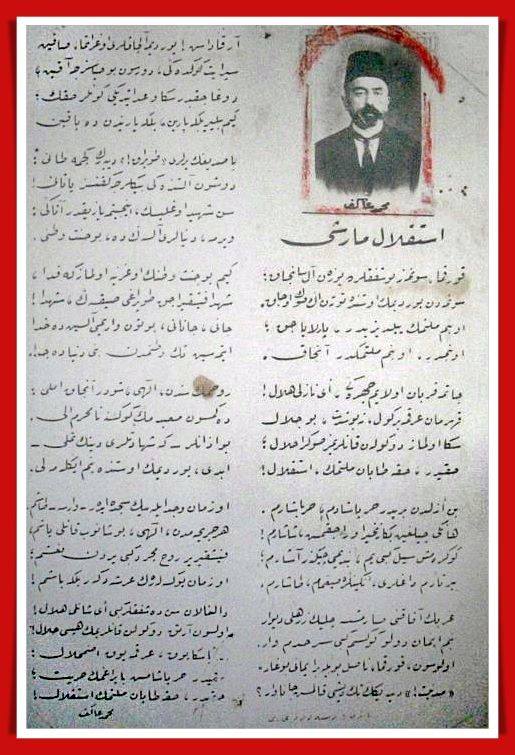 محمد عاكف
استقلال مارشى
قورقما، سونمز بو شفقلرده يوزن آل سانجاق؛
سونمدن يورديمك اوستنده توتن اك صوك اوجاق.
او بنم ملتمك ييلديزيدر، پارلاياجق؛
او بنمدر، او بنم ملتمكدر آنجاق.
چاتمه قربان اولايم چهره‌كى اى نازلى هلال!
قهرمان عرقمه بر كول، نه بو شدت، بو جلال
سكا اولماز دوكولن قانلريمز صوكرا حلال؛
حقيدر، حقه طاپان ملتمك، استقلال!
بن ازلدن بريدر حر ياشادم، حر ياشارم.
هانكى چيلغين بكا زنجير اوراجقمش، شاشارم!
كوكره‌مش سيل كبى يم، بنديمى چيكنر آشارم؛
ييرتارم داغلرى، انكينلره صيغمام، طاشارم.
غربك آفاقنى صارمشسه چليك زرهلى ديوار
بنم ايمان دولو كوكسم كبى سرحدم وار.
اولوسون، قورقما، ناصل بويله بر ايمانى بوغار،
«مدنيت!» ديديكك تك ديشى قالمش جاناوار؟
آرقاداش! يورديمه آلچاقلرى اوغراتما، صاقين
سپر ايت كوكده‌كى، دورسون بو حياسزجه آقين؛
دوغاجقدر سكا وعد ايتديكى كونلر حقك؛
كيم بيلير بلكه يارين، بلكه ياريندن ده ياقين
باصديغك يرلرى «طوپراق!» دييه‌رك كچمه طانى؛
دوشون آلتنده‌كى بيكلرجه كفنسز ياتانى!
سن شهيد اوغليسك، اينجيتمه، يازيقدر آتاكى؛
ويرمه، دنيالرى آلسه‌ك ده، بو جنت وطنى.
كيم بو جنت وطنك اوغرينه اولماز كه فدا،
شهدا فيشقيراجق طوپراغى صيقسه‌ك، شهدا!
جانى، جانانى، بوتون واريمى آلسين ده خدا
ايتمه‌سين تك وطنمدن بنى دنياده جدا.
روحمك سندن، الهى، شودر آنجاق املى؛
دكمسون معبديمك كوكسنه نامحرم الى.
بو اذانلر ـ كه شهادتلرى دينك تملى ـ
ابدى، يورديمك اوستنده بنم ايكله‌ملى.
او زمان وجد ايله بيك سجده ايدر ـ وارسه ـ طاشم
هر جريحه‌مدن، الهى، بوشانوب قانلى ياشم،
فيشقيرير روح مجرد كبى يردن نعشم؛
او زمان يوكسله‌رك عرشه دكر بلكه باشم!
دالغالان سن ده شفقلر كبى اى شانلى هلال!
اولسون آرتق دوكولن قانلريمك هپسى حلال!
ابديا سكا يوق، عرقمه يوق اضمحلال؛
حقيدر، حر ياشامش بايراغمك حريت؛
حقيدر، حقه طاپان ملتمك استقلال!
محمد عاكف